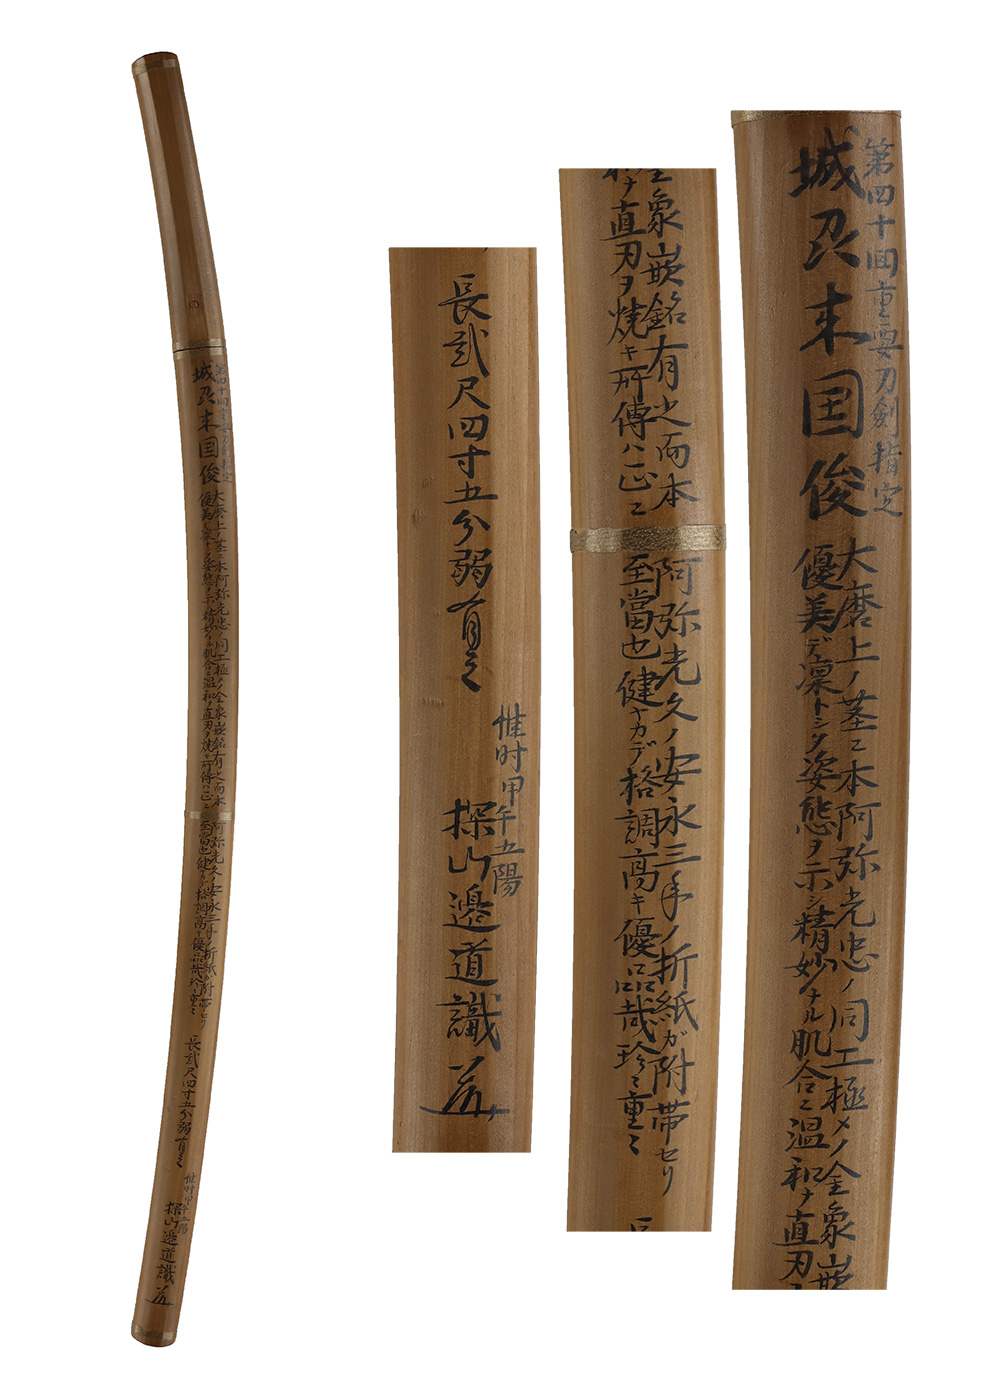 第四十回重要刀剣指定
城刕来国俊
大磨上ノ茎ニ本阿弥光忠ノ同工極メノ金象嵌
優美デ凛トシタ姿態ヲ示シ精妙ナル肌合ニ温和ナ直刃
金象嵌銘有之而本
和ナ直刃ヲ焼キ所傳ハ正ニ
阿弥光久ノ安永三年ノ折紙ガ附帯セリ
至當也健ヤカデ格調高キ優品哉珍々重々
長
長貳尺四寸五分弱有之
惟时甲午五陽
探山邉道識